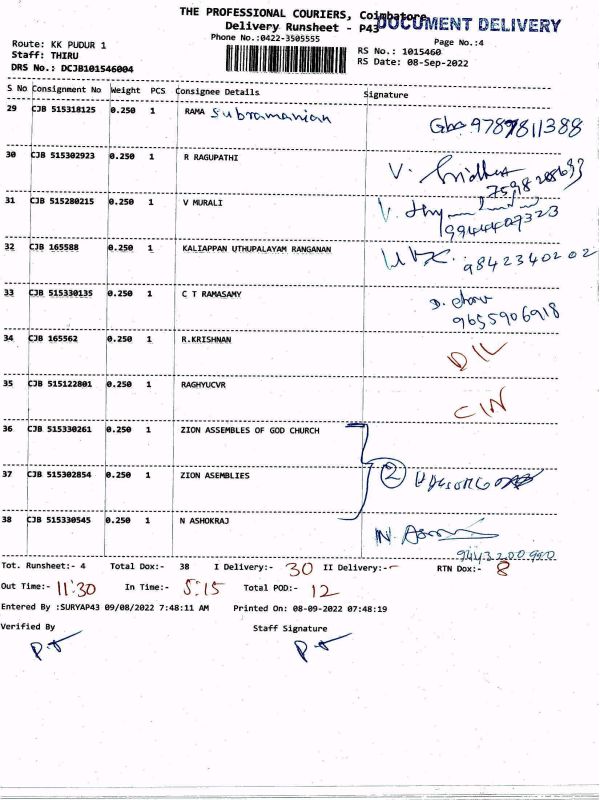 THE PROFESSIONAL COURIERS, Coimbatore
DOCUMENT DELIVERY
Delivery Runsheet - P43
Phone No.:0422-3505555
Page No.:4
Route: KK PUDUR 1
RS No.: 1015460
Staff: THIRU
RS Date: 08-Sep-2022
DRS No.: DCJB101546004
S No Consignment No Weight PCS Consignee Details Signature
29 CJB 515318125 0.250 1 RAMA Subramanian 9789811388
30 CJB 515302923 0.250 1 R RAGUPATHI V.
31 CJB 515280215 0.250 1 V MURALI V. 9944409323
32 CJB 165588 0.250 1 KALIAPPAN UTHUPALAYAM RANGANAN 9842340202
33 CJB 515330135 0.250 1 C T RAMASAMY D. 9655906918
34 CJB 165562 0.250 1 R.KRISHNAN D/L
35 CJB 515122801 0.250 1 RAGHYUCVR C/N
36 CJB 515330261 0.250 1 ZION ASEMBLES OF GOD CHURCH
37 CJB 515302854 0.250 1 ZION ASEMBLIES 2
38 CJB 515330545 0.250 1 N ASHOKRAJ N.
Tot. Runsheet:- 4 Total Dox:- 38 I Delivery:- 30 II Delivery:- - RTN Dox:- 8
Out Time:- 11:30 In Time:- 5:15 Total POD:- 12
Entered By :SURYAP43 09/08/2022 7:48:11 AM Printed On: 08-09-2022 07:48:19
Verified By Staff Signature